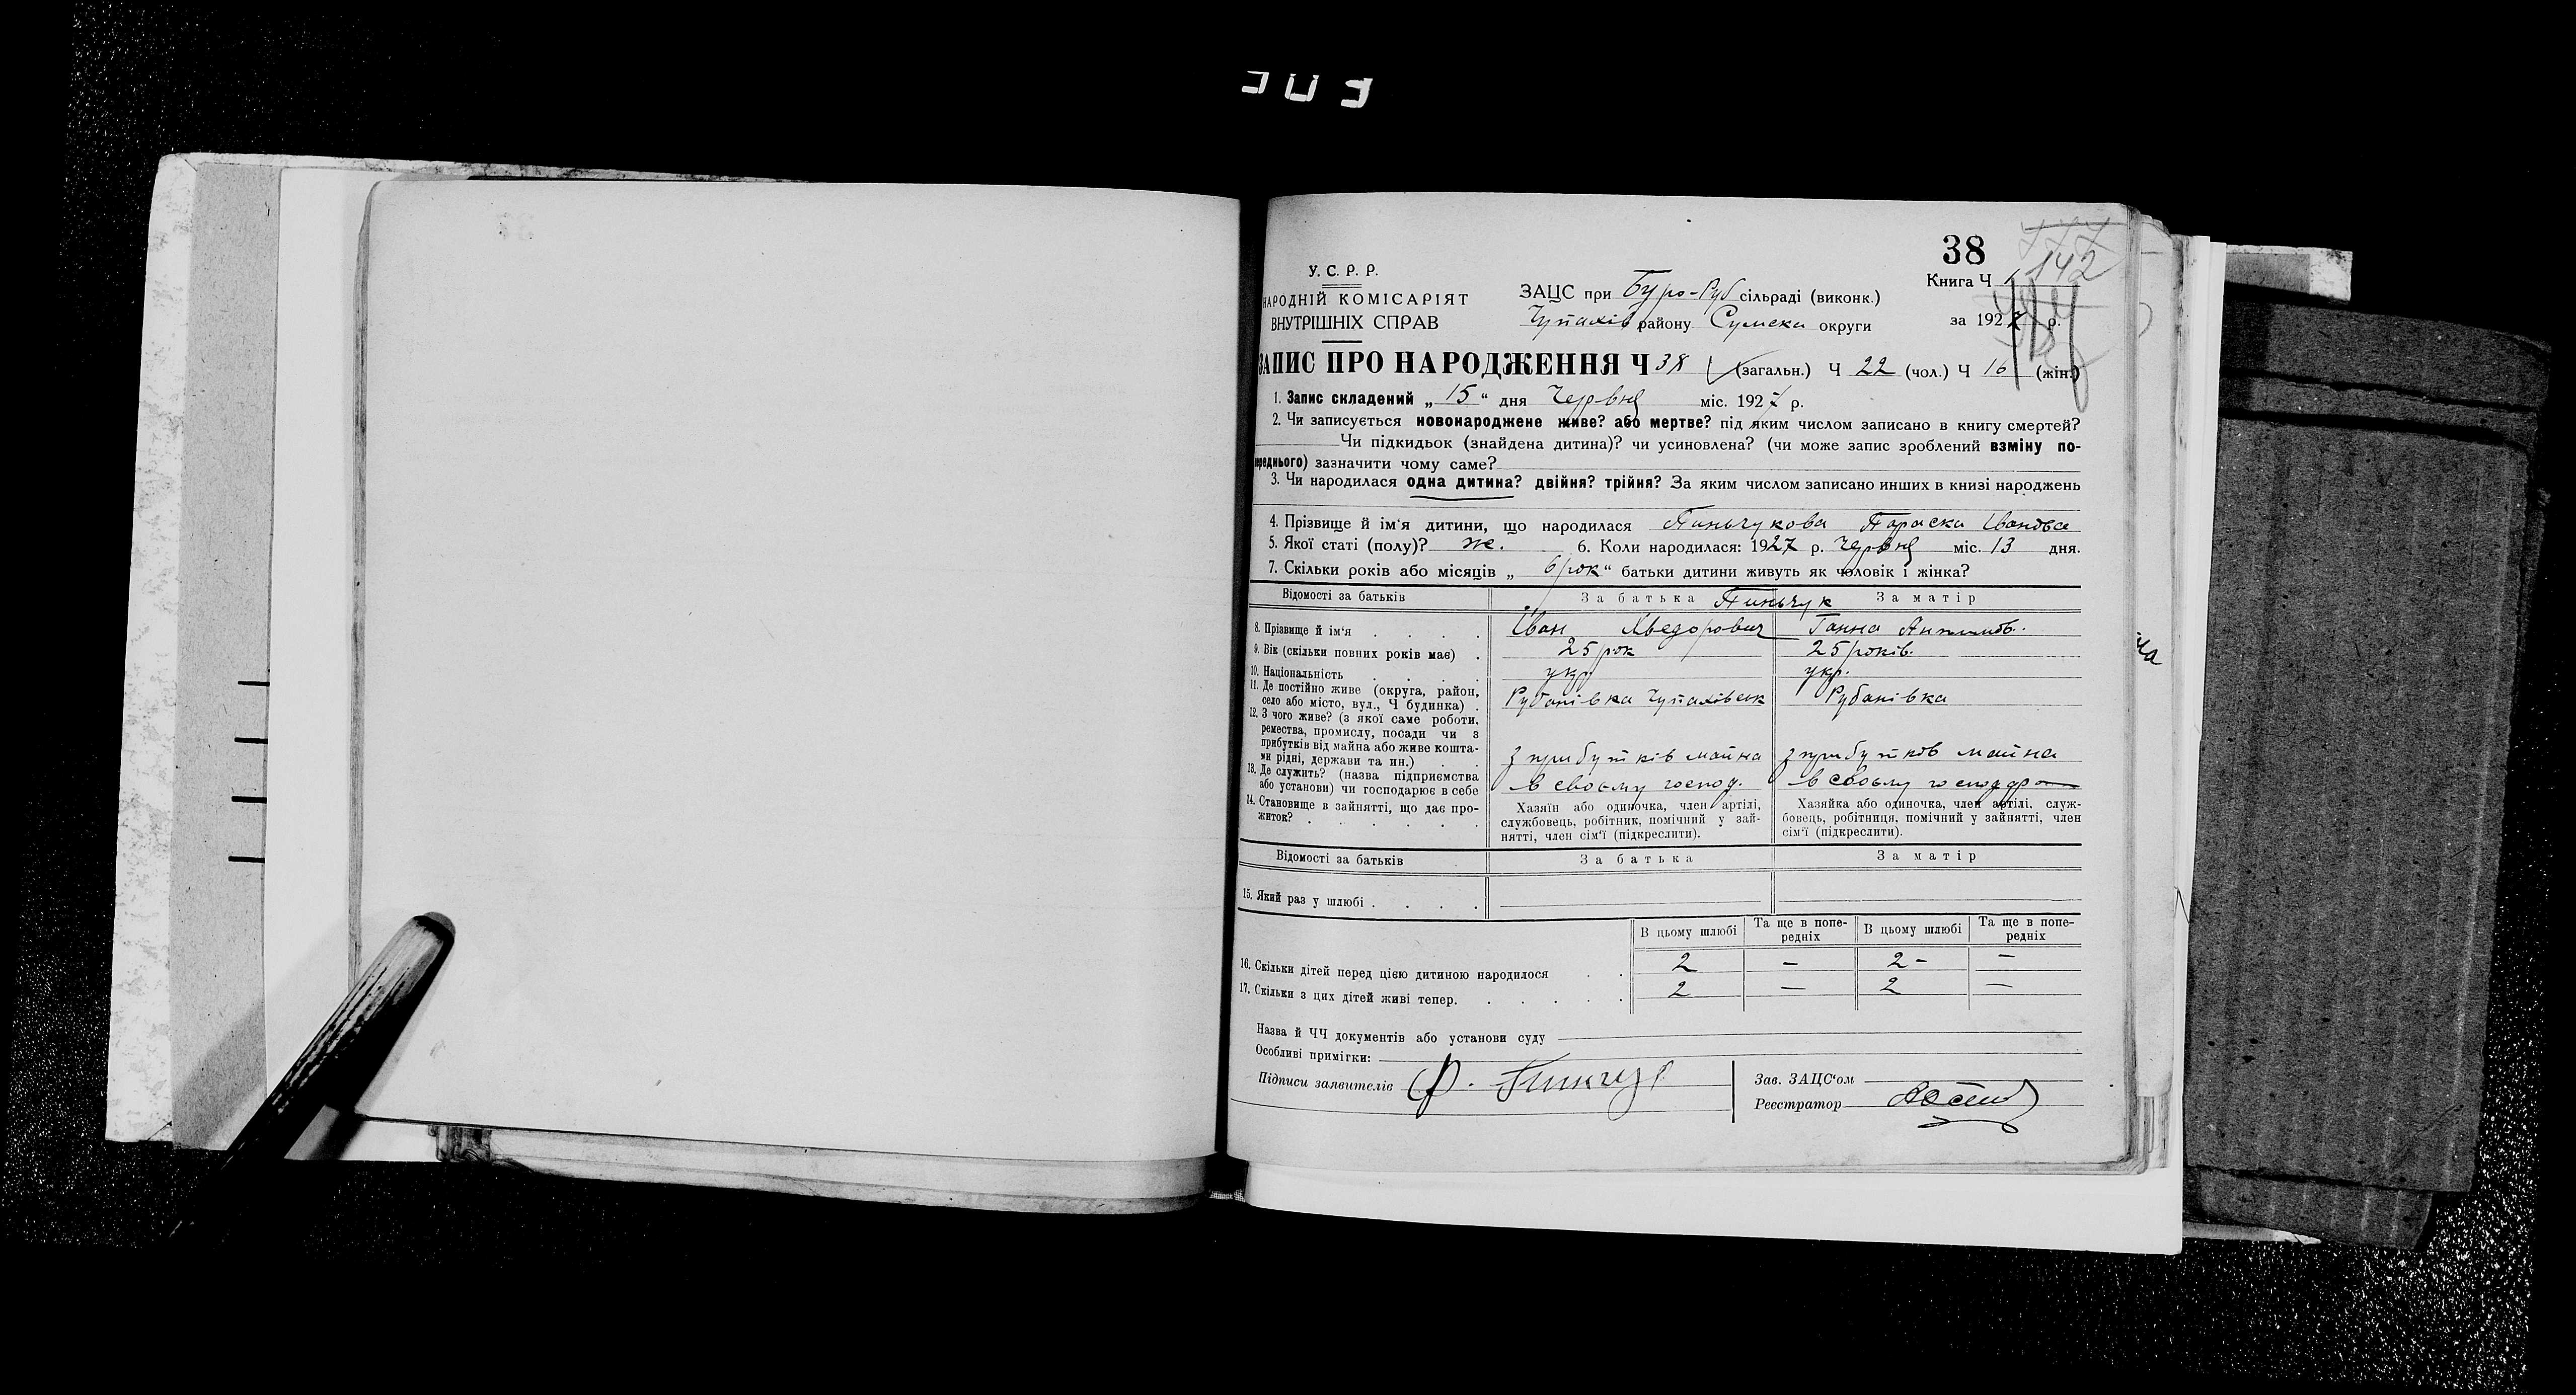 303
38
142
У. С. Р. Р.
НАРОДНІЙ КОМІСАРІЯТ
ВНУТРІШНІХ СПРАВ
ЗАЦС при Буро-Руб сільраді (виконк.)
Чупахів району Сумська округи
Книга Ч
за 1927 р.
ЗАПИС ПРО НАРОДЖЕННЯ Ч 38 (загальн.) Ч 22 (чол.) Ч 16 (жін.)
1. Запис складений „ 15 “ дня Червня міс. 1927 р.
2. Чи записується новонароджене живе? або мертве? під яким числом записано в книгу смертей?
Чи підкидьок (знайдена дитина)? чи усиновлена? (чи може запис зроблений взміну по-
переднього) зазначити чому саме?
3. Чи народилася одна дитина? двійня? трійня? За яким числом записано инших в книзі народжень
4. Прізвище й ім‘я дитини, що народилася Пинчукова Параска Іванова
5. Якої статі (полу)? же. 6. Коли народилася: 1927 р. Червня міс. 13 дня.
7. Скільки років або місяців „ 6 рок “ батьки дитини живуть як чоловік і жінка?
Відомості за батьків За батька За матір
Пиньчук
8. Прізвище й ім‘я Іван Хведорович Ганна
9. Вік (скільки повних років має) 25 рок 25 років.
10. Національність укр. укр.
11. Де постійно живе (округа, район,
село або місто, вул., Ч будинка) Рубанівка Чупахівськ Рубанівка
12. З чого живе? (з якої саме роботи,
ремества, промислу, посади чи з
прибутків від майна або живе кошта-
ми рідні, держави та ин.) з прибутків майна з прибутков майна
13. Де служить? (назва підприємства
або установи) чи господарює в себе в своьму господ. в своьму господар
14. Становище в зайнятті, що дає про-
житок?
Хазяїн або одиночка, член артілі,
службовець, робітник, помічний у зай-
нятті, член сім‘ї (підкреслити).
Хазяйка або одиночка, член артілі, служ-
бовець, робітниця, помічний у зайнятті, член
сім‘ї (підкреслити).
Відомості за батьків За батька За матір
15. Який раз у шлюбі
В цьому шлюбі Та ще в попе-
редніх В цьому шлюбі Та ще в попе-
редніх
16. Скільки дітей перед цією дитиною народилося 2 — 2 - —
17. Скільки з цих дітей живі тепер. 2 — 2 —
Назва й ЧЧ документів або установи суду
Особливі примітки:
Підписи заявителів Ф. Пинчук
Зав. ЗАЦС‘ом
Реєстратор